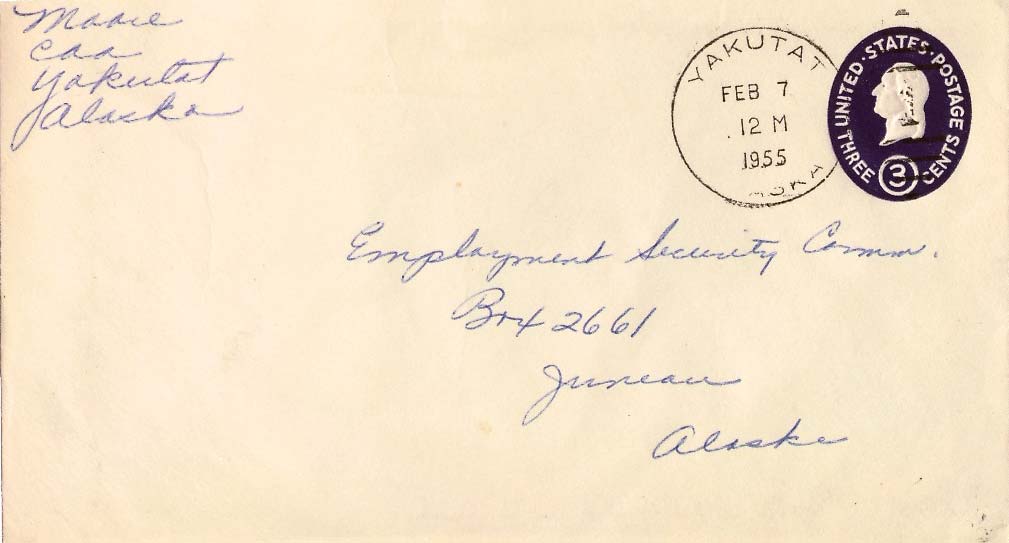 Moore
CAA
Yakutat
Alaska
YAKUTAT
FEB 7
12 M
1955
ASKA
UNITED·STATES·POSTAGE
THREE 3 CENTS
Employment Security Comm.
Box 2661
Juneau
Alaska